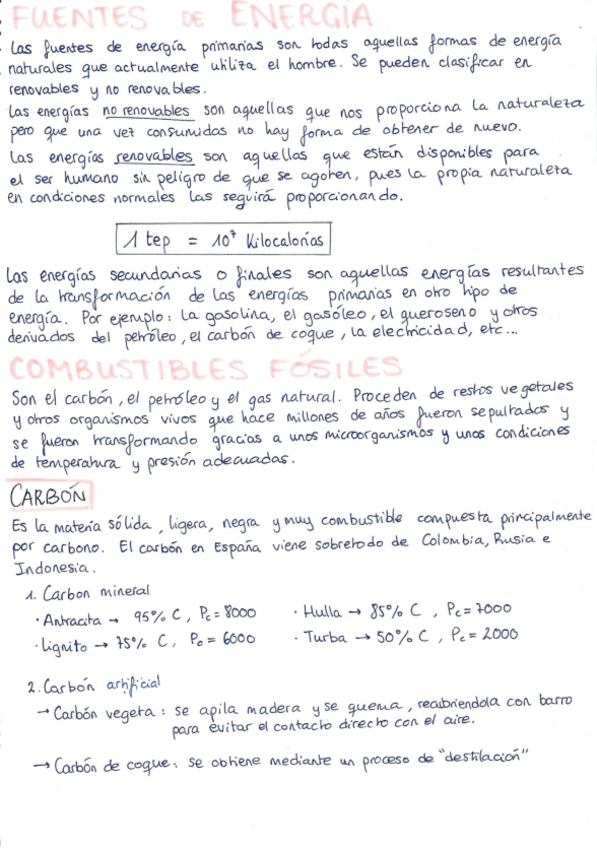 FUENTES DE ENERGÍA
Las fuentes de energía primarias son todas aquellas formas de energía
naturales que actualmente utiliza el hombre. Se pueden clasificar en
renovables y no renovables.
Las energías no renovables son aquellas que nos proporciona la naturaleza
pero que una vez consumidas no hay forma de obtener de nuevo.
Las energías renovables son aquellas que están disponibles para
el ser humano sin peligro de que se agoten, pues la propia naturaleza
en condiciones normales las seguirá proporcionando.
1 tep = 10⁷ Kilocalorías
Las energías secundarias o finales son aquellas energías resultantes
de la transformación de las energías primarias en otro tipo de
energía. Por ejemplo: La gasolina, el gasóleo, el queroseno y otros
derivados del petróleo, el carbón de coque, la electricidad, etc...
COMBUSTIBLES FÓSILES
Son el carbón, el petróleo y el gas natural. Proceden de restos vegetales
y otros organismos vivos que hace millones de años fueron sepultados y
se fueron transformando gracias a unos microorganismos y unas condiciones
de temperatura y presión adecuadas.
CARBÓN
Es la materia sólida, ligera, negra y muy combustible compuesta principalmente
por carbono. El carbón en España viene sobretodo de Colombia, Rusia e
Indonesia.
1. Carbon mineral
· Antracita → 95% C, Pc = 8000 · Hulla → 85% C, Pc = 7000
· Lignito → 75% C, Pc = 6000 · Turba → 50% C, Pc = 2000
2. Carbón artificial
→ Carbón vegeta: se apila madera y se quema, recubriendola con barro
para evitar el contacto directo con el aire.
→ Carbón de coque: se obtiene mediante un proceso de "destilación"